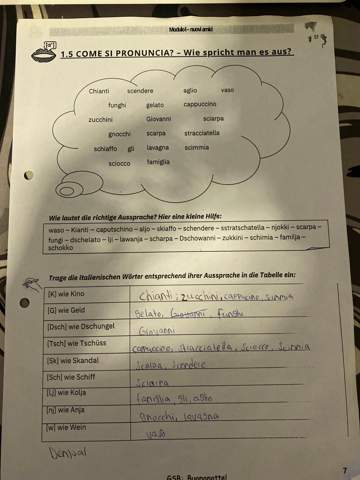 Modulo I – nuovi amici
1.5 COME SI PRONUNCIA? – Wie spricht man es aus?
Chianti scendere aglio vaso
funghi gelato cappuccino
zucchini Giovanni sciarpa
gnocchi scarpa stracciatella
schiaffo gli lavagna scimmia
sciocco famiglia
Wie lautet die richtige Aussprache? Hier eine kleine Hilfe:
waso – Kianti – caputschino – aljo – skiaffo – schendere – sstratschatella – njokki – scarpa –
fungi – dschelato – lji – lawanja – scharpa – Dschowanni – zukkini – schimia – familja –
schokko
Trage die italienischen Wörter entsprechend ihrer Aussprache in die Tabelle ein:
[K] wie Kino Chianti, zucchini, cappucino,
[G] wie Geld Gelato, Giovanni, funghi
[Dsch] wie Dschungel Giovanni
[Tsch] wie Tschüss stracciatella,
[Sk] wie Skandal Scarpa,
[Sch] wie Schiff
[Lj] wie Kolja famiglia, gli,
[nj] wie Anja Gnocchi, lavagna
[w] wie Wein vaso
GSB: Buononotte!
7